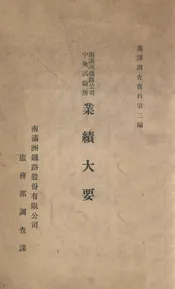 漢譯調查資料第二編
南滿洲鐵路公司
中央試驗所
業績大要
南滿洲鐵路股份有限公司
庶務部調查課